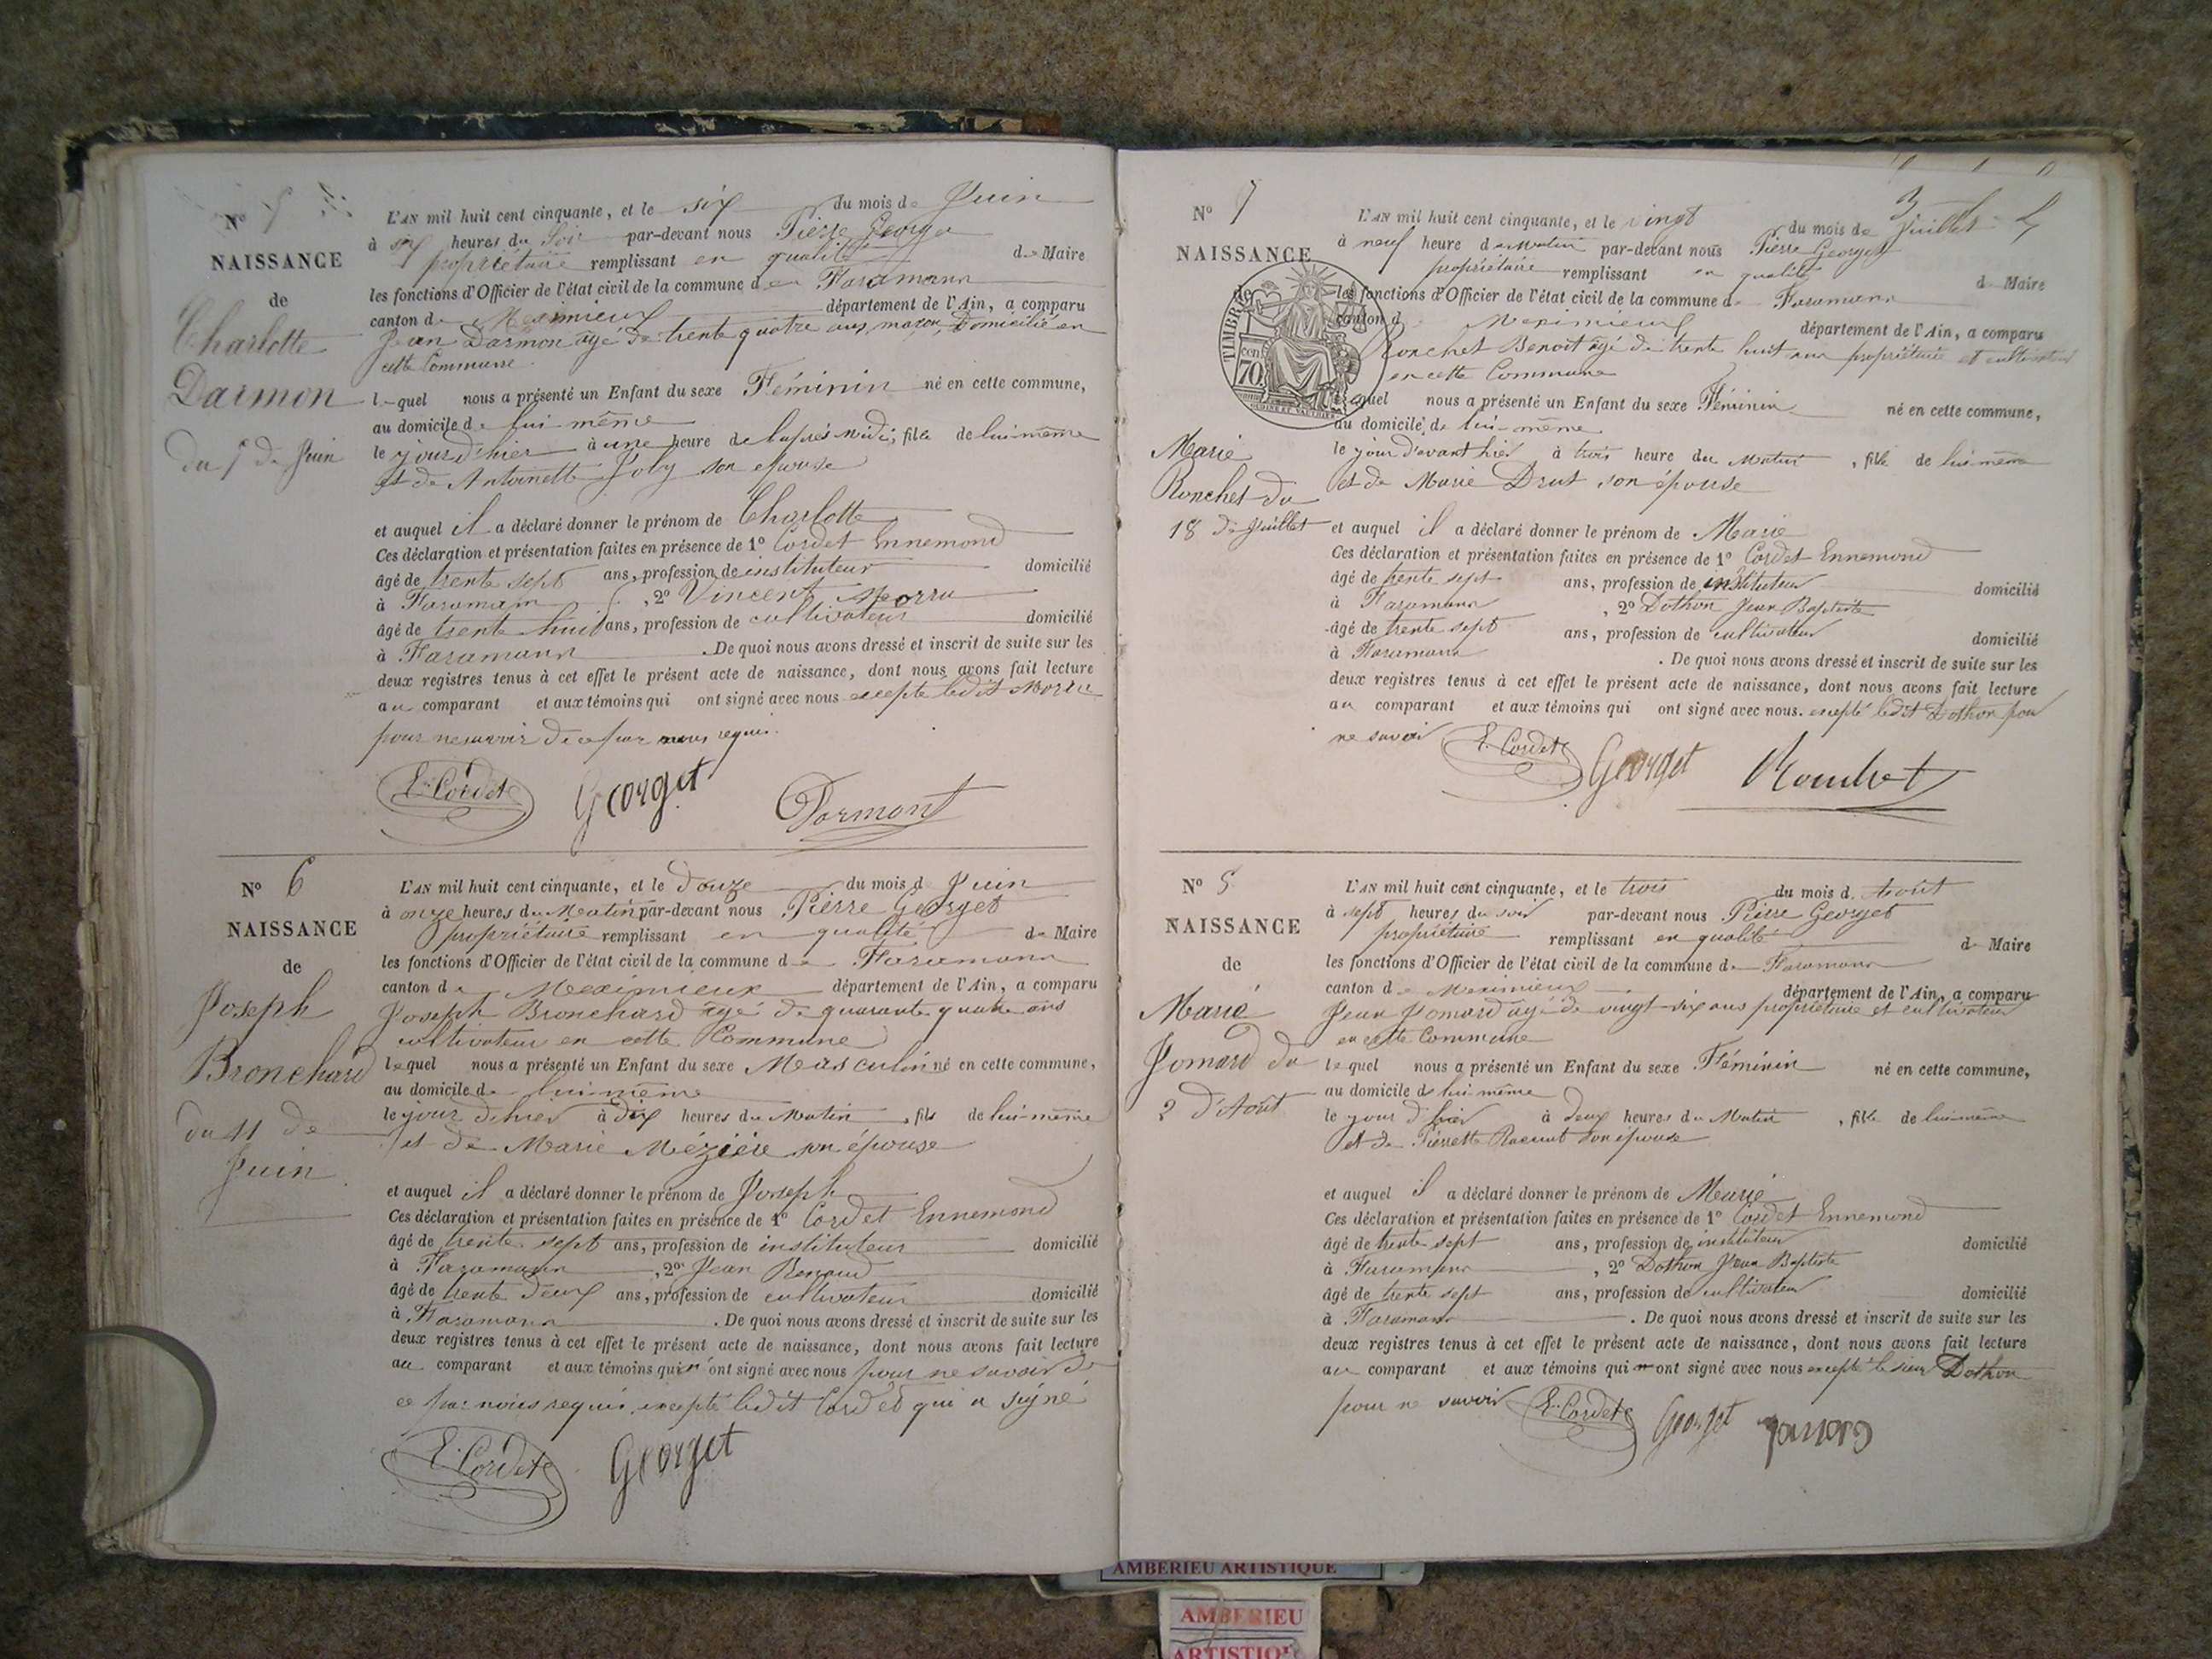 N° 5
NAISSANCE
de
Charlotte
Darmon
du 5 de Juin
L'AN mil huit cent cinquante, et le six du mois de Juin
à six heures du Soir par-devant nous Pierre Georget
propriétaire remplissant en qualité de Maire
les fonctions d'Officier de l'état civil de la commune de Faramann
canton de Meximieux département de l'Ain, a comparu
Jean Darmon âgé de trente quatre ans, maçon, Domicilié en
cette Commune
lequel nous a présenté un Enfant du sexe Féminin né en cette commune,
au domicile de lui même
le jour d'hier à une heure de l'après midi, fille de lui même
et de Antoinette Joly son épouse
et auquel il a déclaré donner le prénom de Charlotte
Ces déclaration et présentation faites en présence de 1° Cordet Ennemond
âgé de trente sept ans, profession de instituteur domicilié
à Faramann , 2° Vincent Morru
âgé de trente huit ans, profession de cultivateur domicilié
à Faramann . De quoi nous avons dressé et inscrit de suite sur les
deux registres tenus à cet effet le présent acte de naissance, dont nous avons fait lecture
au comparant et aux témoins qui ont signé avec nous excepté ledit Morru
pour ne savoir de ce par nous requis.
E. Cordet Georget Darmont
N° 6
NAISSANCE
de
Joseph
Bronchard
du 11 de
Juin
L'AN mil huit cent cinquante, et le douze du mois d Juin
à onze heures du Matin par-devant nous Pierre Georget
propriétaire remplissant en qualité de Maire
les fonctions d'Officier de l'état civil de la commune de Faramann
canton de Meximieux département de l'Ain, a comparu
Joseph Bronchard âgé de quarante quatre ans
cultivateur en cette Commune
lequel nous a présenté un Enfant du sexe Masculin né en cette commune,
au domicile de lui même
le jour d'hier à dix heures du Matin , fils de lui-même
et de Marie Mézière son épouse
et auquel il a déclaré donner le prénom de Joseph
Ces déclaration et présentation faites en présence de 1° Cordet Ennemond
âgé de trente sept ans, profession de instituteur domicilié
à Faramann , 2° Jean Renaud
âgé de trente deux ans, profession de cultivateur domicilié
à Faramann . De quoi nous avons dressé et inscrit de suite sur les
deux registres tenus à cet effet le présent acte de naissance, dont nous avons fait lecture
au comparant et aux témoins qui n'ont signé avec nous pour ne savoir de
ce par nous requis excepté ledit Cordet qui a signé
E. Cordet Georget
N° 7
NAISSANCE
de
Marie
Ronchet du
18 de Juillet
TIMBRE
70 cent
L'AN mil huit cent cinquante, et le vingt du mois de Juillet
à neuf heure du Matin par-devant nous Pierre Georget
propriétaire remplissant en qualité de Maire
les fonctions d'Officier de l'état civil de la commune de Faramann
canton d Meximieux département de l'Ain, a comparu
Ronchet Benoit âgé de trente huit ans propriétaire et cultivateur
en cette Commune
lequel nous a présenté un Enfant du sexe Féminin né en cette commune,
au domicile de lui-même
le jour d'avant hier à trois heure du Matin , fille de lui même
et de Marie Drut son épouse
et auquel il a déclaré donner le prénom de Marie
Ces déclaration et présentation faites en présence de 1° Cordet Ennemond
âgé de trente sept ans, profession de instituteur domicilié
à Faramann , 2° Dothon Jean Baptiste
âgé de trente sept ans, profession de cultivateur domicilié
à Faramann . De quoi nous avons dressé et inscrit de suite sur les
deux registres tenus à cet effet le présent acte de naissance, dont nous avons fait lecture
au comparant et aux témoins qui ont signé avec nous. excepté ledit Dothon pour
ne savoir
E. Cordet Georget Ronchet
N° 8
NAISSANCE
de
Marie
Jomard du
2 d'Août
L'AN mil huit cent cinquante, et le trois du mois d. Août
à sept heures du soir par-devant nous Pierre Georget
propriétaire remplissant en qualité de Maire
les fonctions d'Officier de l'état civil de la commune de Faramann
canton de Meximieux département de l'Ain, a comparu
Jean Jomard âgé de vingt-six ans propriétaire et cultivateur
en cette Commune
lequel nous a présenté un Enfant du sexe Féminin né en cette commune,
au domicile de lui même
le jour d'hier à deux heures du Matin , fille de lui même
et de Pierrette son épouse
et auquel il a déclaré donner le prénom de Marie
Ces déclaration et présentation faites en présence de 1° Cordet Ennemond
âgé de trente sept ans, profession de instituteur domicilié
à Faramann , 2° Dothon Jean Baptiste
âgé de trente sept ans, profession de cultivateur domicilié
à Faramann . De quoi nous avons dressé et inscrit de suite sur les
deux registres tenus à cet effet le présent acte de naissance, dont nous avons fait lecture
au comparant et aux témoins qui ont signé avec nous excepté le sieur Dothon
pour ne savoir
E. Cordet Georget Jomard
AMBERIEU ARTISTIQUE
AMBERIEU
ARTISTIQUE